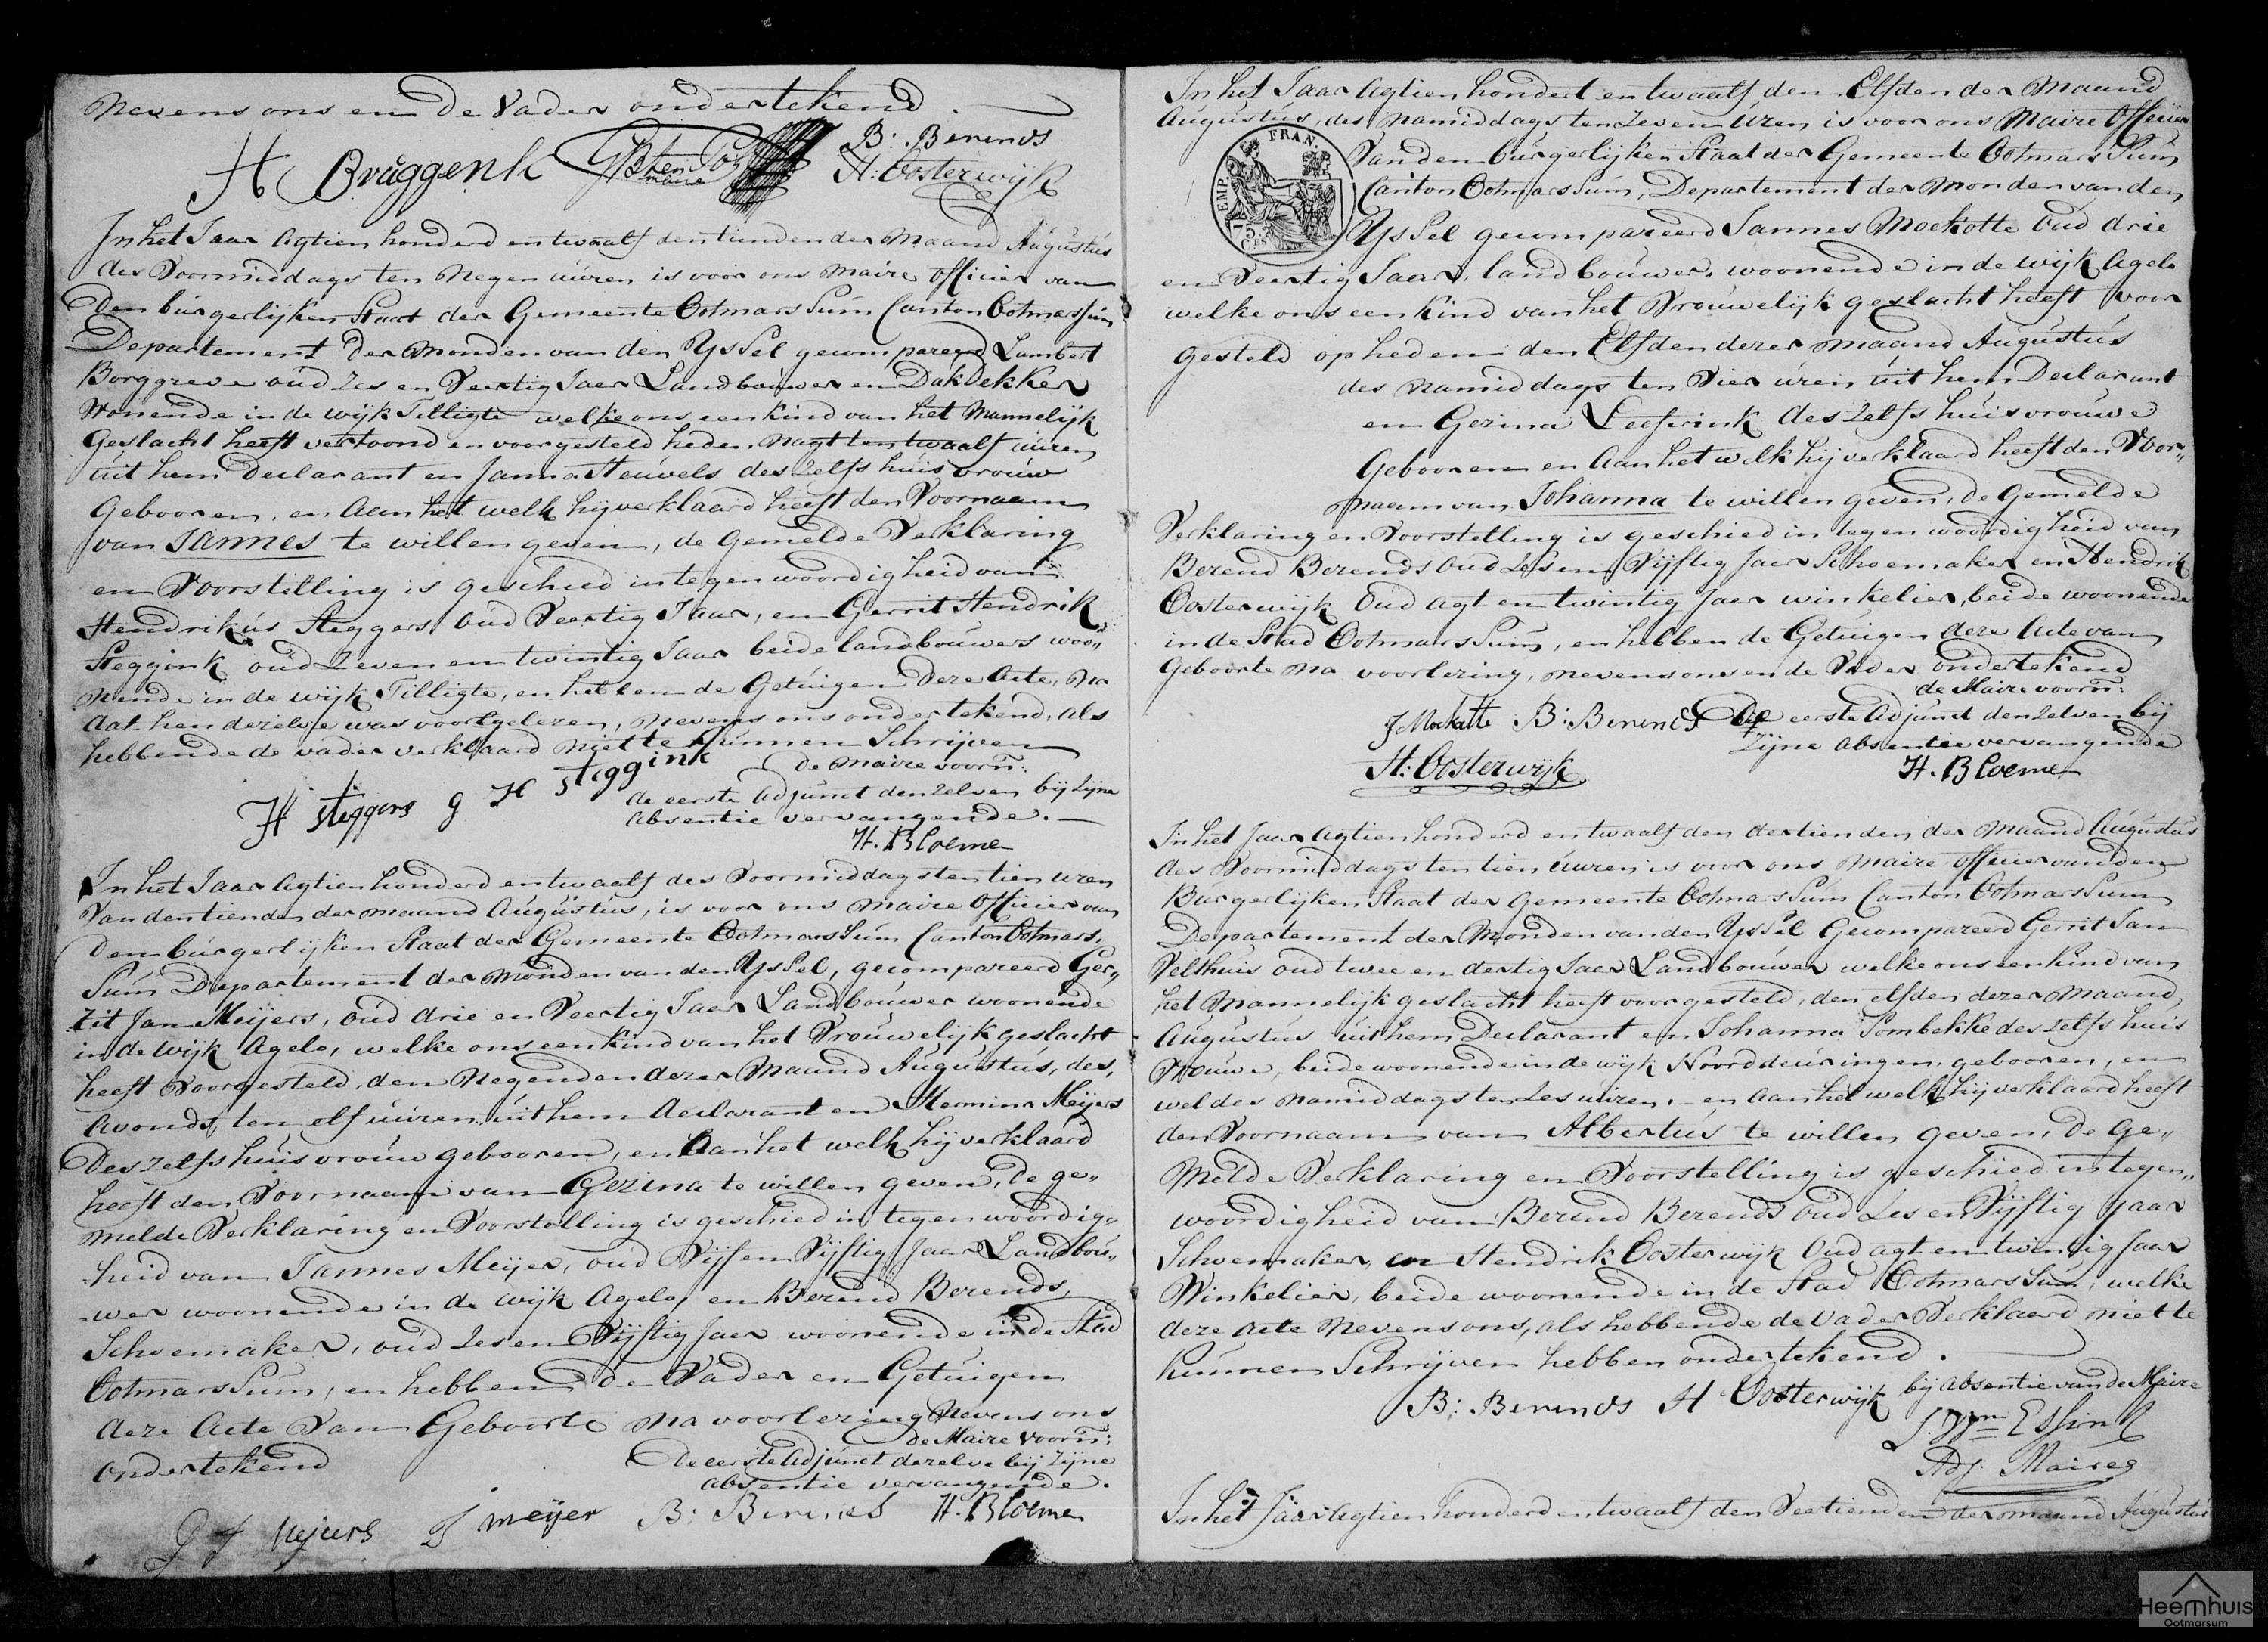 nevens ons en de Vader ondertekend.
H Bruggenk B: Berends
maire H: Oosterwijk
In het Jaar Agtien honderd en twaalf den tienden der Maand Augustus
des Voormiddags ten Negen uúren is voor ons Maire Officier van
den búrgerlijken Staat der Gemeente OotmarsSúm Canton OotmarsSúm
Departement der Monden van den YsSel gecompareerd Lambert
Borggreve oúd Zes en Veertig Jaer Landboúwer en DakDekker
Wonende in de wijk Tilligte welke ons een kind van het Mannelijk
Geslacht heeft vertoond en voorgesteld heden nagt ten twaalf uúren
úit hem Declarant en Janna Steuvels deszelfs húisvroúw
Gebooren, en Aan het welk hij verklaard heeft den Voornaam
van JANNES te willen geven, de Gemelde Verklaring
en Voorstelling is geschied in tegenwoordigheid van
Hendrikús Steggers Oúd Veertig Jaar, en Gerrit Hendrik
Steggink oúd Zeven en twintig Jaar beide landboúwers woo„
nende in de wijk Tilligte, en hebben de Getúigen Deze Acte, na
dat hen dezelve was voorgelezen, Nevens ons ondertekend, als
hebbende de vader verklaard niet te kúnnen Schrijven
de Maire voorn:
H Steggers G H Steggink de eerste Adjunct denzelven bij zijne
absentie vervangende.
H. Bloemen
In het Jaar Agtien honderd en twaalf des Voormiddags ten tien uren
Van den tienden der maand Augústus, is voor ons Maire Officier van
den búrgerlijken Staat der Gemeente OotmarsSúm Canton Ootmars,
Súm Departement der Monden van den YsSel, gecompareerd Ger„
rit Jan Meijers, Oúd drie en Veertig Jaar Landboúwer woonende
in de wijk Agelo, welke ons een kind van het Vroúwelijk geslacht
heeft Voorgesteld, den Negenden dezer Maand Augústus, des,
Avonds ten elf uúren úit hem declarant en Hermina Meijers
Deszelfs húisvroúw gebooren, en Aan het welk hij verklaard
heeft den Voornaam van Gezina te willen geven, de ge„
melde Verklaring en Voorstelling is geschied in tegenwoordig„
heid van Jannes Meijer, oúd Vijf en Vijftig Jaar Landboú„
wer woonende in de wijk Agelo, en Berend Berends,
Schoemaker, oúd Zes en Vijftig Jaer woonende in de Stad
OotmarsSúm, en hebben de Vader en Getúigen
deze Acte Van Geboorte na voorlezing Nevens ons
de Maire Voorn:
Ondertekend De eerste Adjunct dezelve bij zijne
absentie vervangende.
J meijer B: Berends H. Bloemen
In het Jaar Agtien hondert en twaalf den Elfden der Maand
Augústús, des Namiddags ten Zeven Uren is voor ons Maire Officier
Van den búrgerlijken Staat der Gemeente OotmarsSúm
EMP. FRAN.
75
C.ES
Canton OotmarsSúm, Departement der Monden van den
YsSel gecompareerd Jannes Mockotte Oúd drie
en Veertig Jaar, landboúwer, woonende in de wijk Agelo
welke ons een kind van het Vrouwelijk geslacht heeft voor
gesteld op heden den Elfden dezer Maand Augústús
des Namiddags ten Vier uren úit hem Declarant
en Gezina Leeferink deszelfs húisvroúwe
Gebooren en Aan het welk hij verklaard heeft den Voor„
naam van Johanna te willen geven, de Gemelde
Verklaring en Voorstelling is geschied in tegenwoordigheid van
Berend Berends Oúd Zes en Vijftig Jaer Schoemaker en Hendrik
Oosterwijk Oúd agt en twintig Jaer winkelier, beide woonende
in de Stad OotmarsSúm, en hebben de Getúigen deze Acte van
Geboorte na voorlezing, nevens ons en de Vader ondertekend
de Maire voorn:
J Mockotte B: Berends De eerste Adjunct denzelven bij
zijne absentie vervangende
H: Oosterwijk H. Bloemen
In het Jaar Agtien honderd en twaalf den dertienden der Maand Augústus
des Voormiddags ten tien úuren is voor ons Maire officier van den
Búrgerlijken Staat der Gemeente OotmarsSúm Canton OotmarsSúm
Departement der Monden van den YsSel Gecompareerd Gerrit Jan
Velthuis oud twee en dertig Jaer Landboúwer welke ons een kind van
het Mannelijk geslacht heeft voorgesteld, den elfden dezer Maand,
Augústus úit hem Declarant en Johanna Pombekke deszelfs huis
vroúwe, beide woonende in de wijk Noorddeúringen, gebooren, en
wel des Namiddags ten Zes uúren, en Aan het welk hij verklaard heeft
den Voornaam van Albertús te willen geven, de ge„
melde Verklaring en Voorstelling is geschied in tegen„
woordigheid van Berend Berends Oúd Zes en Vijftig Jaar
Schoemaker, en Hendrik Oosterwijk Oúd agt en twintig Jaar
Winkelier, beide woonende in de Stad OotmarsSúm, welke
deze Acte Nevens ons, als hebbende de Vader Verklaard niet te
kúnnen Schrijven hebben ondertekend.
B: Berends H Oosterwijk bij absentie van de Maire
Essink
Adj. Maire
In het Jaar Agtien honderd en twaalf den Veertienden der maand Augústus
Heemhuis
Ootmarsum